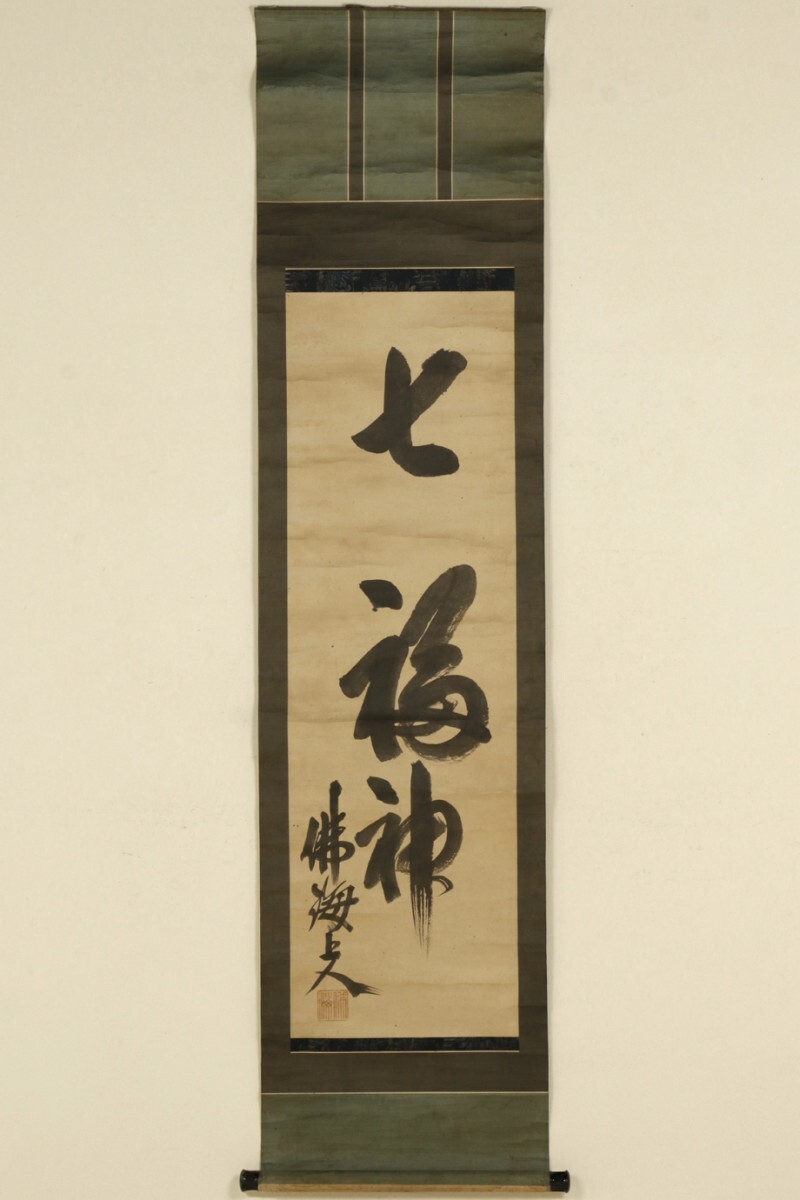 七福神
佛海上人